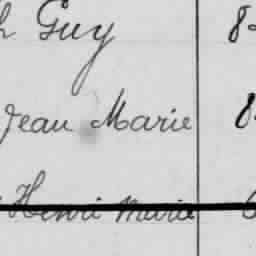 Guy 8
Jean Marie 8
Henri Marie